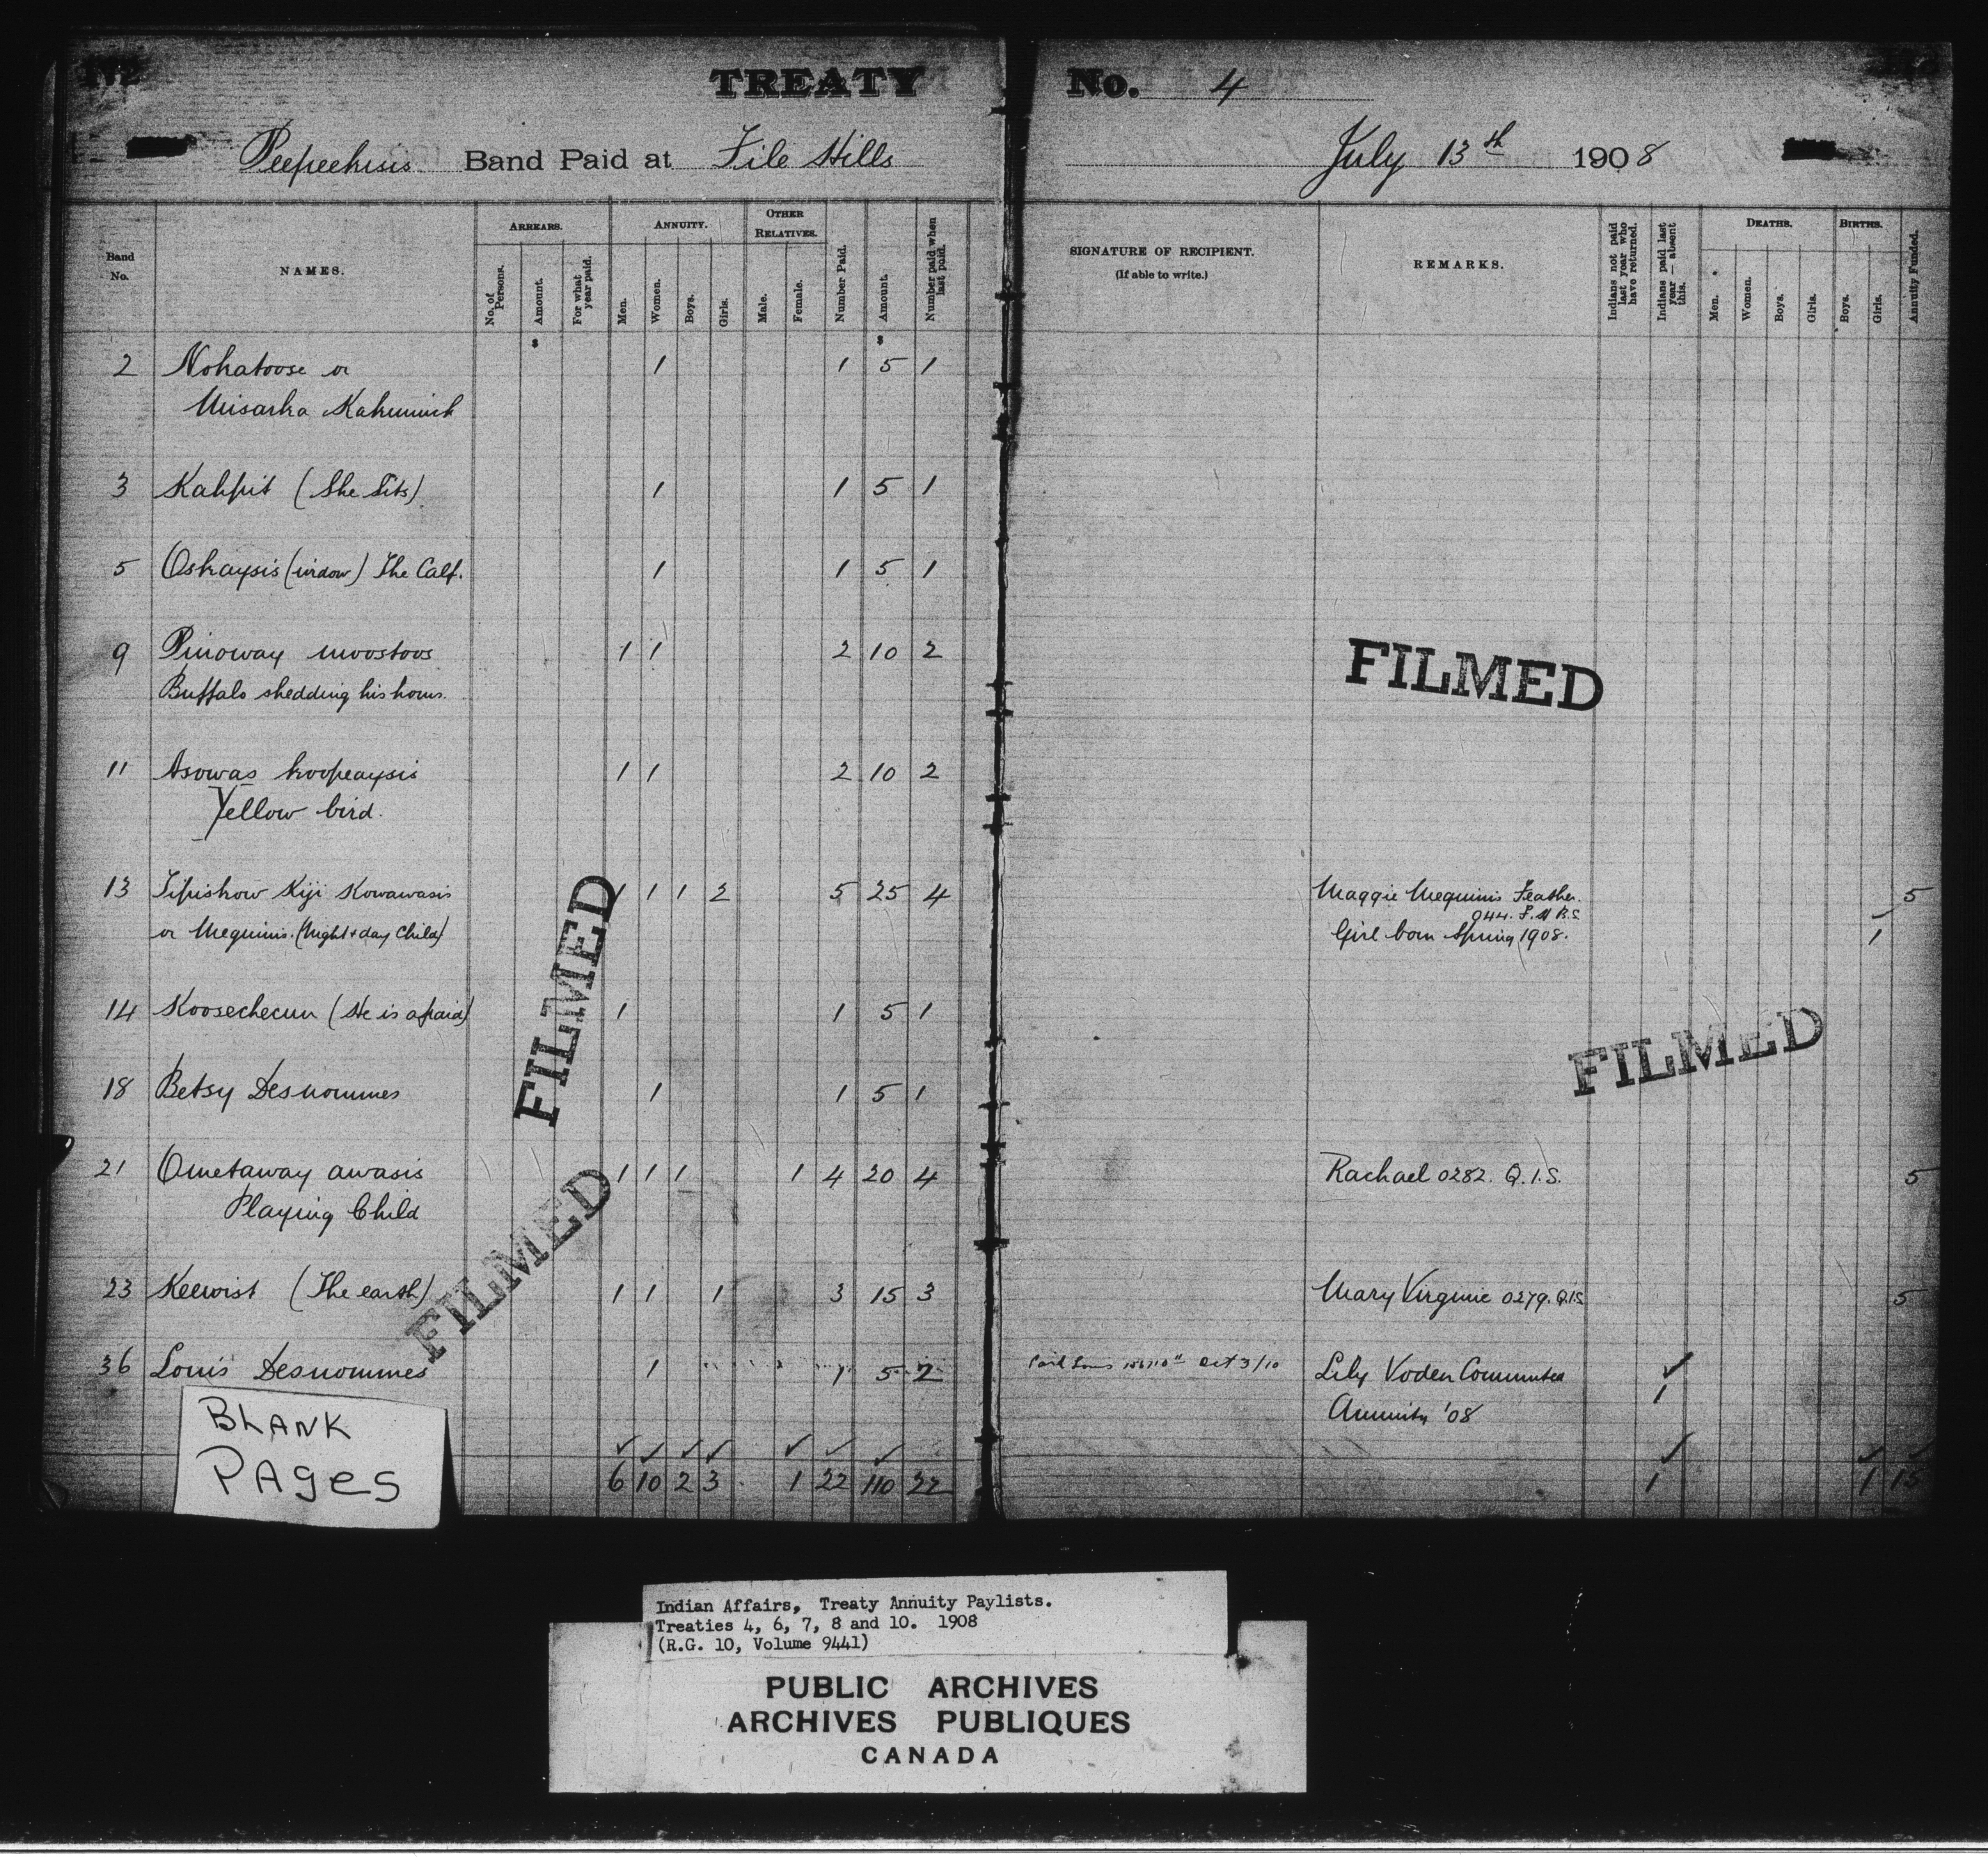 TREATY No. 4
Peepeekisis Band Paid at File Hills July 13th 1908
Band No.
NAMES.
ARREARS.
No. of Persons.
Amount.
For what year paid.
ANNUITY.
Men.
Women.
Boys.
Girls.
OTHER RELATIVES.
Male.
Female.
Number Paid.
Amount.
Number paid when last paid.
SIGNATURE OF RECIPIENT.
(If able to write.)
REMARKS.
Indians not paid last year who have returned.
Indians paid last year — absent this.
DEATHS.
Men.
Women.
Boys.
Girls.
BIRTHS.
Boys.
Girls.
Annuity Funded.
$ $
2 Nohatoose or 1 1 5 1
Misarka Kahumick
3 Kahpit (She Sits) 1 1 5 1
5 Oskaysis (widow) The Calf. 1 1 5 1
9 Pinoway moostoos 1 1 2 10 2
Buffalo shedding his horns.
11 Asowas koopeaysis 1 1 2 10 2
Yellow bird.
13 Tipiskow Kiji Kowawasis 1 1 1 2 5 25 4 Maggie Mequinis Feather. 5
044. F.H B.S
or Mequinis. (Night + day Child) Girl born Spring 1908. 1
14 Koosecheun (He is afraid) 1 1 5 1
18 Betsy Desnommes 1 1 5 1
21 Ometaway awasis 1 1 1 1 4 20 4 Rachael 0282. Q.I.S. 5
Playing Child
23 Keewist (The earth) 1 1 1 3 15 3 Mary Virginie 0279. Q.I.S 5
36 Louis Desnommes 1 1 5 2 Oct 3/10 Lily Voden Commuted ✓
Annuity '08 1
✓ ✓ ✓ ✓ ✓ ✓ ✓ ✓ ✓ ✓
6 10 2 3 1 22 110 22 1 1 15
FILMED
FILMED
FILMED
FILMED
BLANK
PAGES
Indian Affairs, Treaty Annuity Paylists.
Treaties 4, 6, 7, 8 and 10. 1908
(R.G. 10, Volume 9441)
PUBLIC ARCHIVES
ARCHIVES PUBLIQUES
CANADA